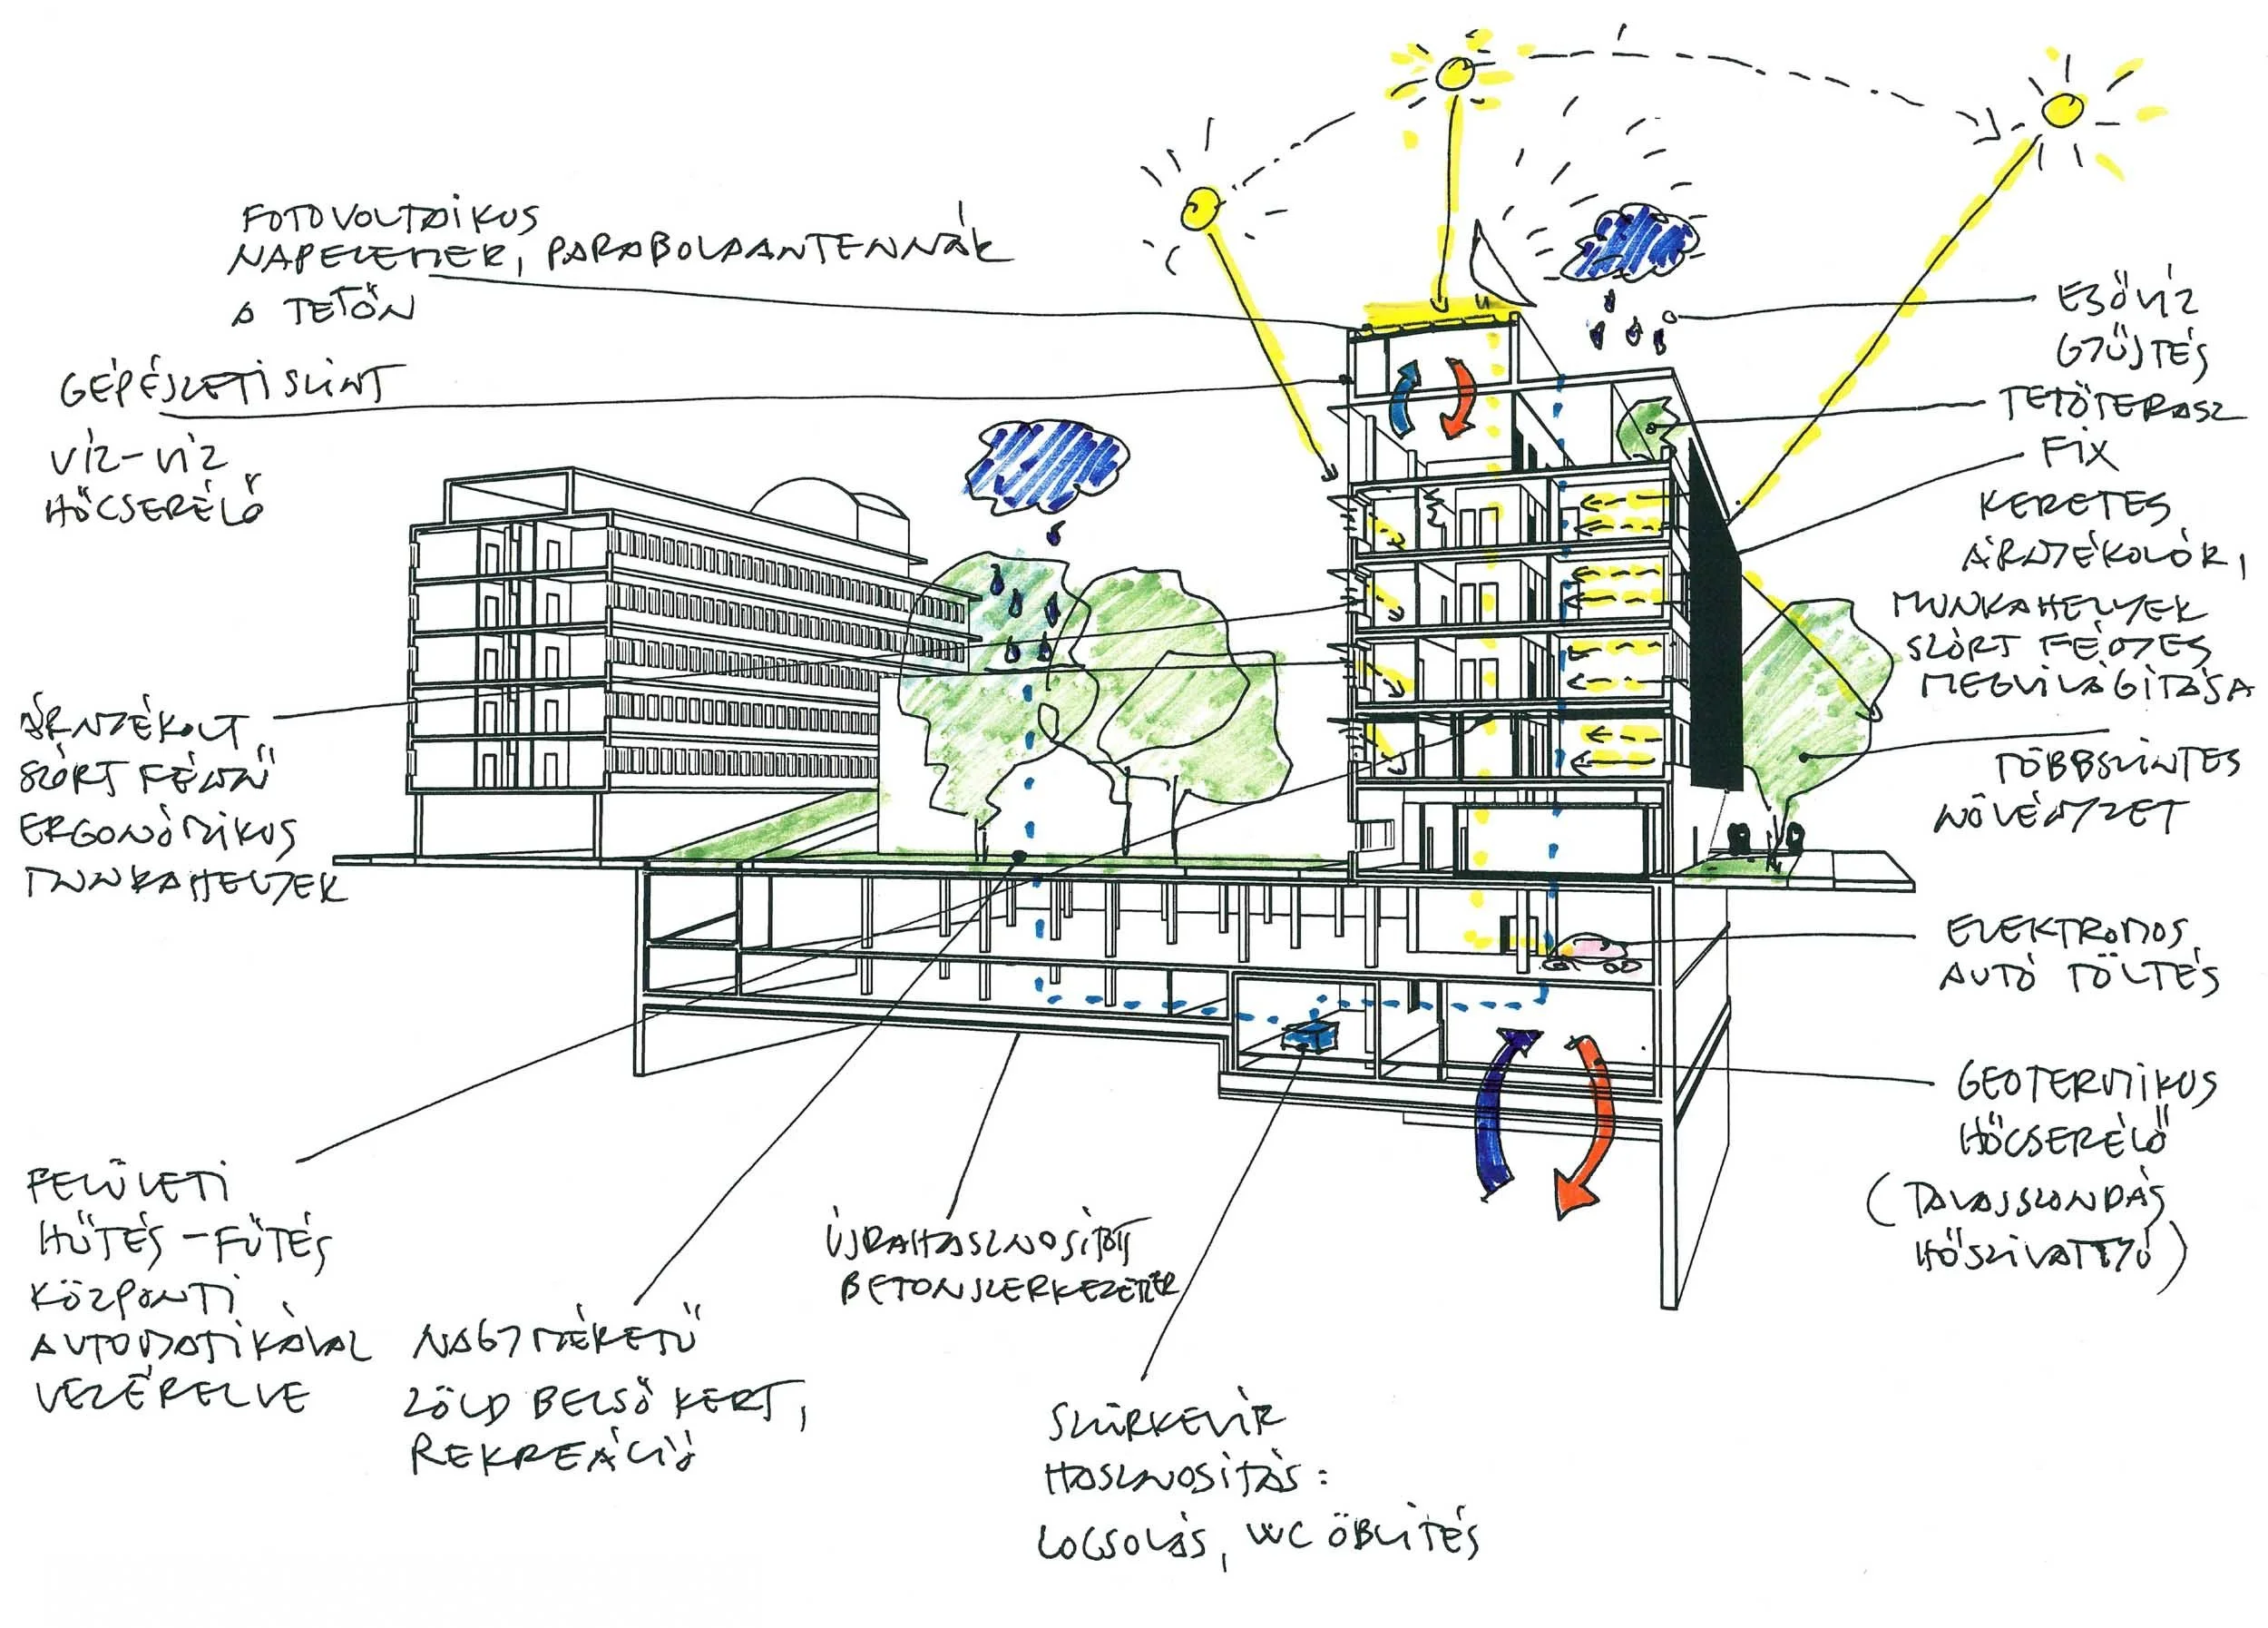 FOTOVOLTAIKUS
NAPELEMEK, PARABOLAANTENNÁK
A TETŐN
GÉPÉSZETI SZINT
VÍZ-VÍZ
HŐCSERÉLŐ
ÁRNYÉKOLT
SZÓRT FÉNYŰ
ERGONÓMIKUS
MUNKAHELYEK
FELÜLETI
HŰTÉS-FŰTÉS
KÖZPONTI
AUTOMATIKÁVAL
VEZÉRELVE
NAGYMÉRETŰ
ZÖLD BELSŐ KERT,
REKREÁCIÓ
ÚJRAHASZNOSÍTOTT
BETONSZERKEZETEK
SZÜRKEVÍZ
HASZNOSÍTÁS:
LOCSOLÁS, WC ÖBLÍTÉS
ESŐVÍZ
GYŰJTÉS
TETŐTERASZ
FIX
KERETES
ÁRNYÉKOLÓK,
MUNKAHELYEK
SZÓRT FÉNYES
MEGVILÁGÍTÁSA
TÖBBSZINTES
NÖVÉNYZET
ELEKTROMOS
AUTÓ TÖLTÉS
GEOTERMIKUS
HŐCSERÉLŐ
(TALAJSZONDÁS
HŐSZIVATTYÚ)